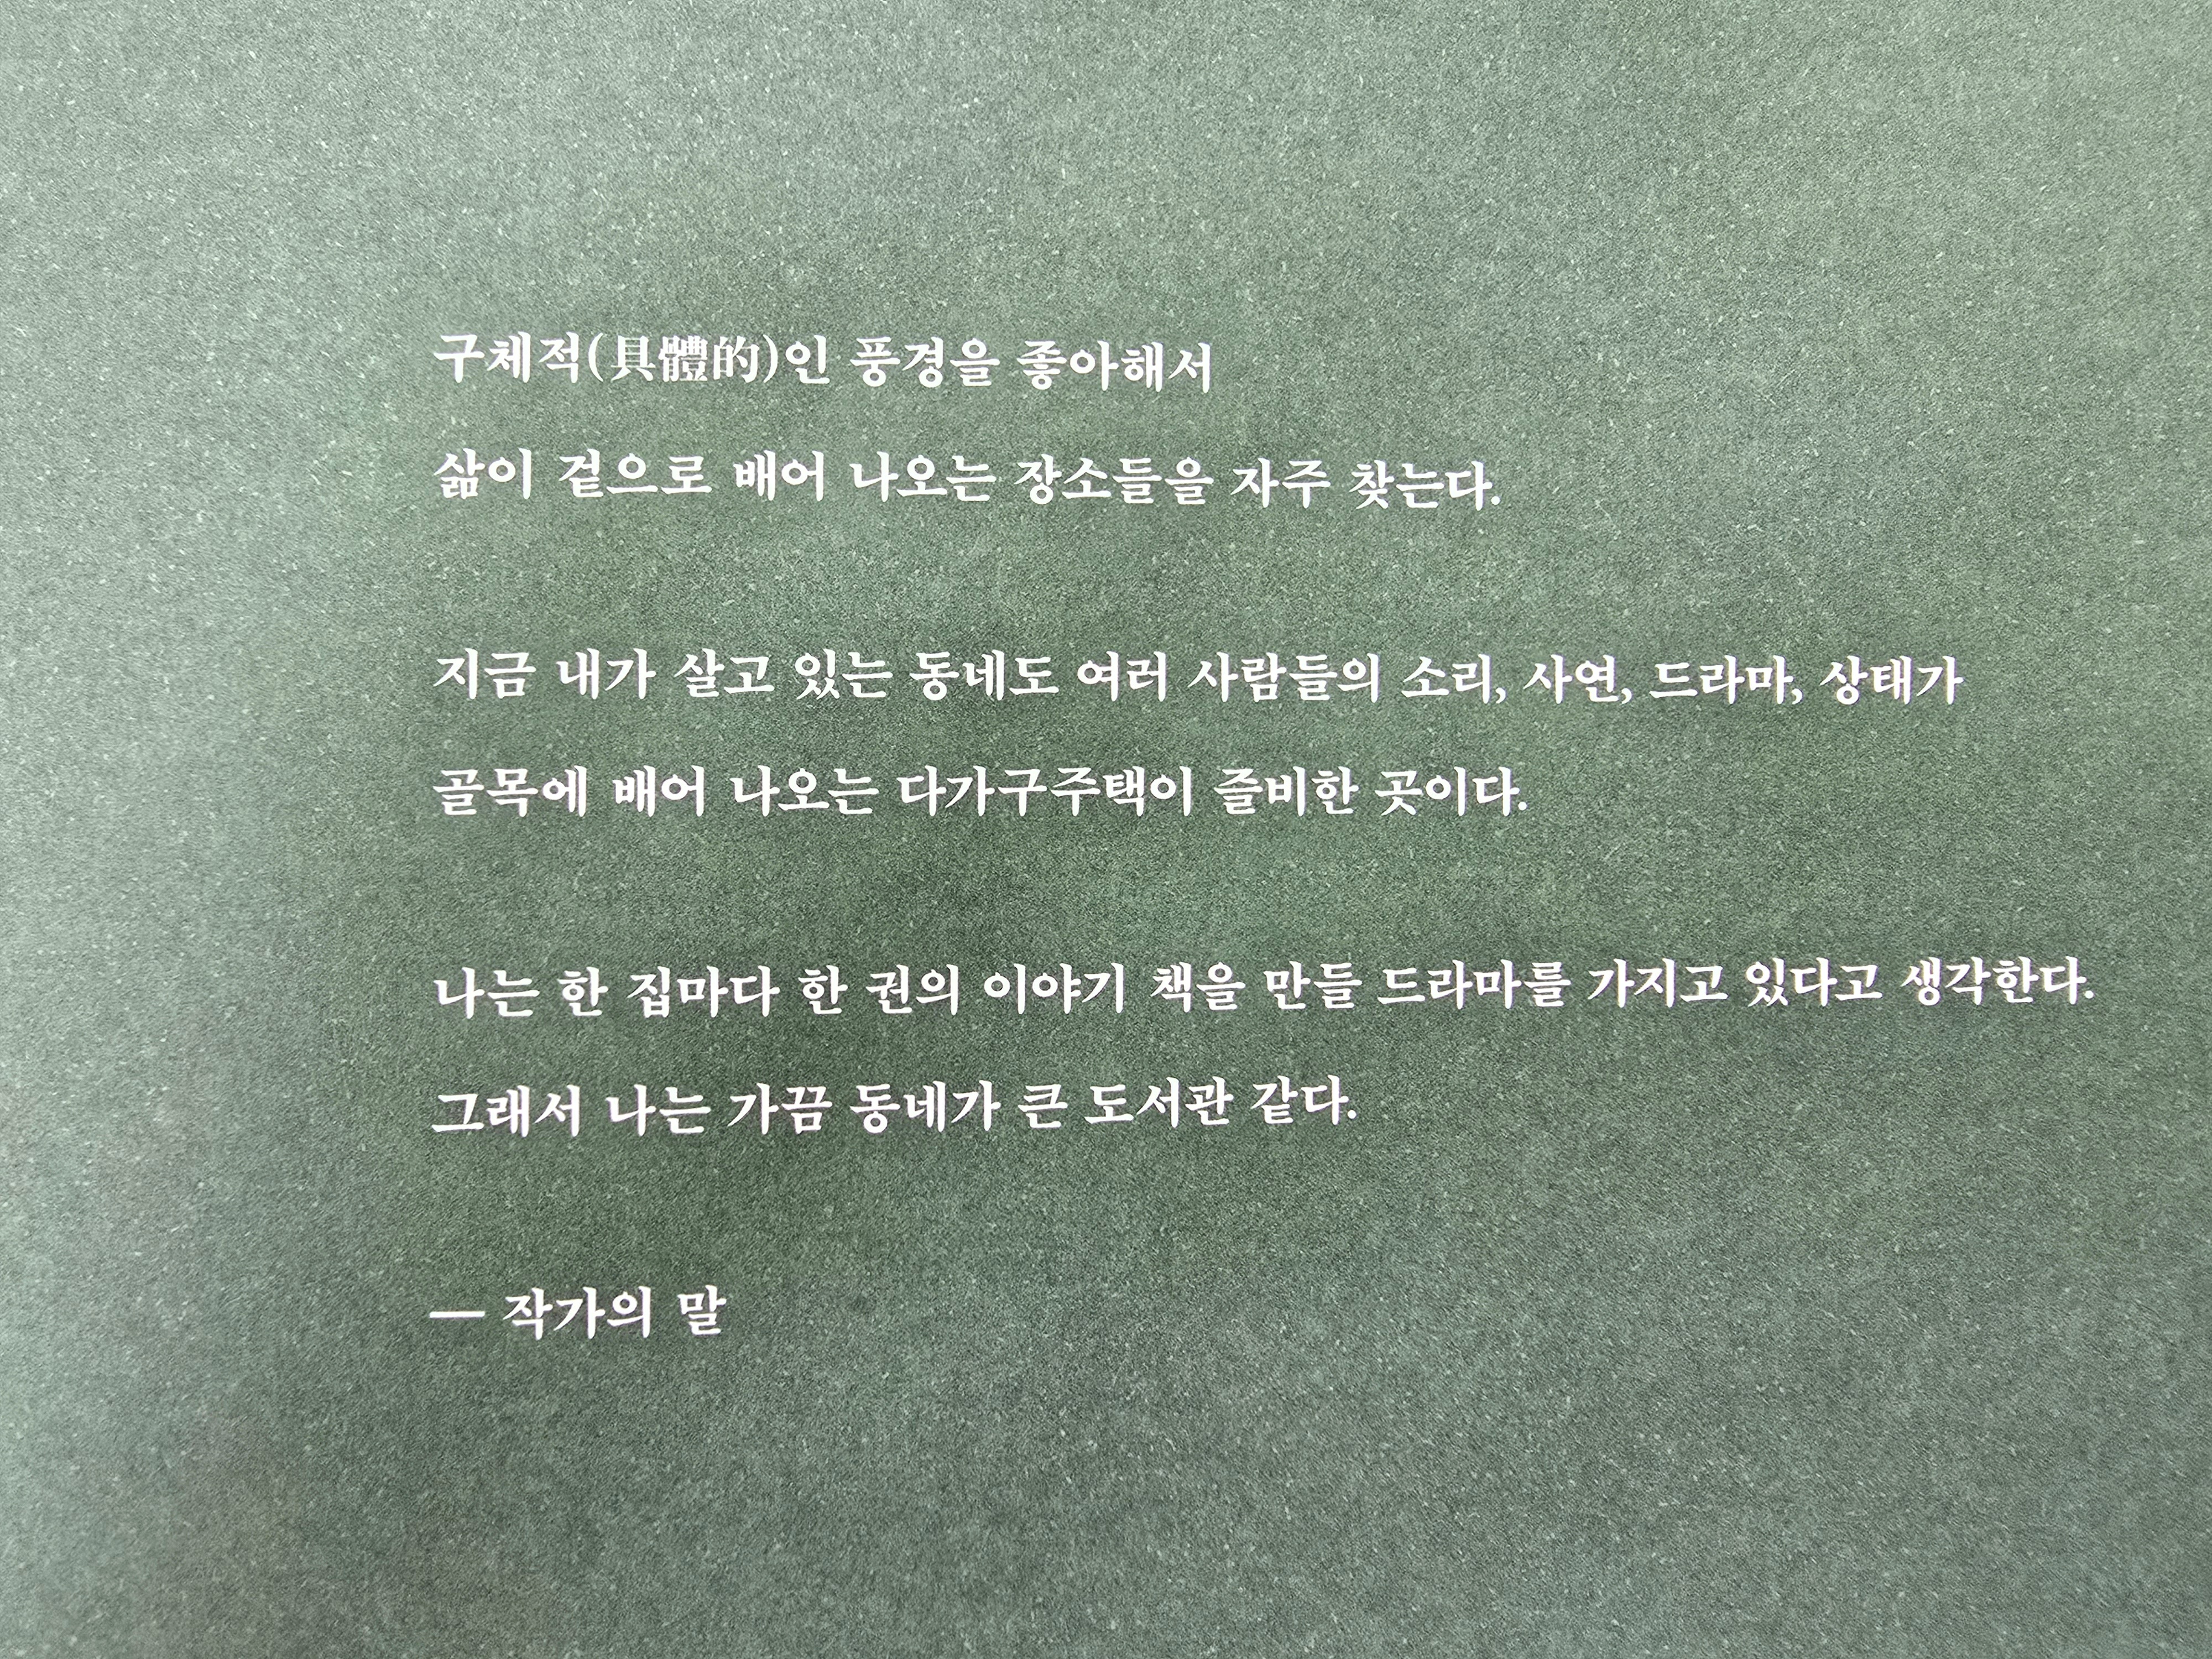 구체적(具體的)인 풍경을 좋아해서
삶이 겉으로 배어 나오는 장소들을 자주 찾는다.
지금 내가 살고 있는 동네도 여러 사람들의 소리, 사연, 드라마, 상태가
골목에 배어 나오는 다가구주택이 즐비한 곳이다.
나는 한 집마다 한 권의 이야기 책을 만들 드라마를 가지고 있다고 생각한다.
그래서 나는 가끔 동네가 큰 도서관 같다.
— 작가의 말